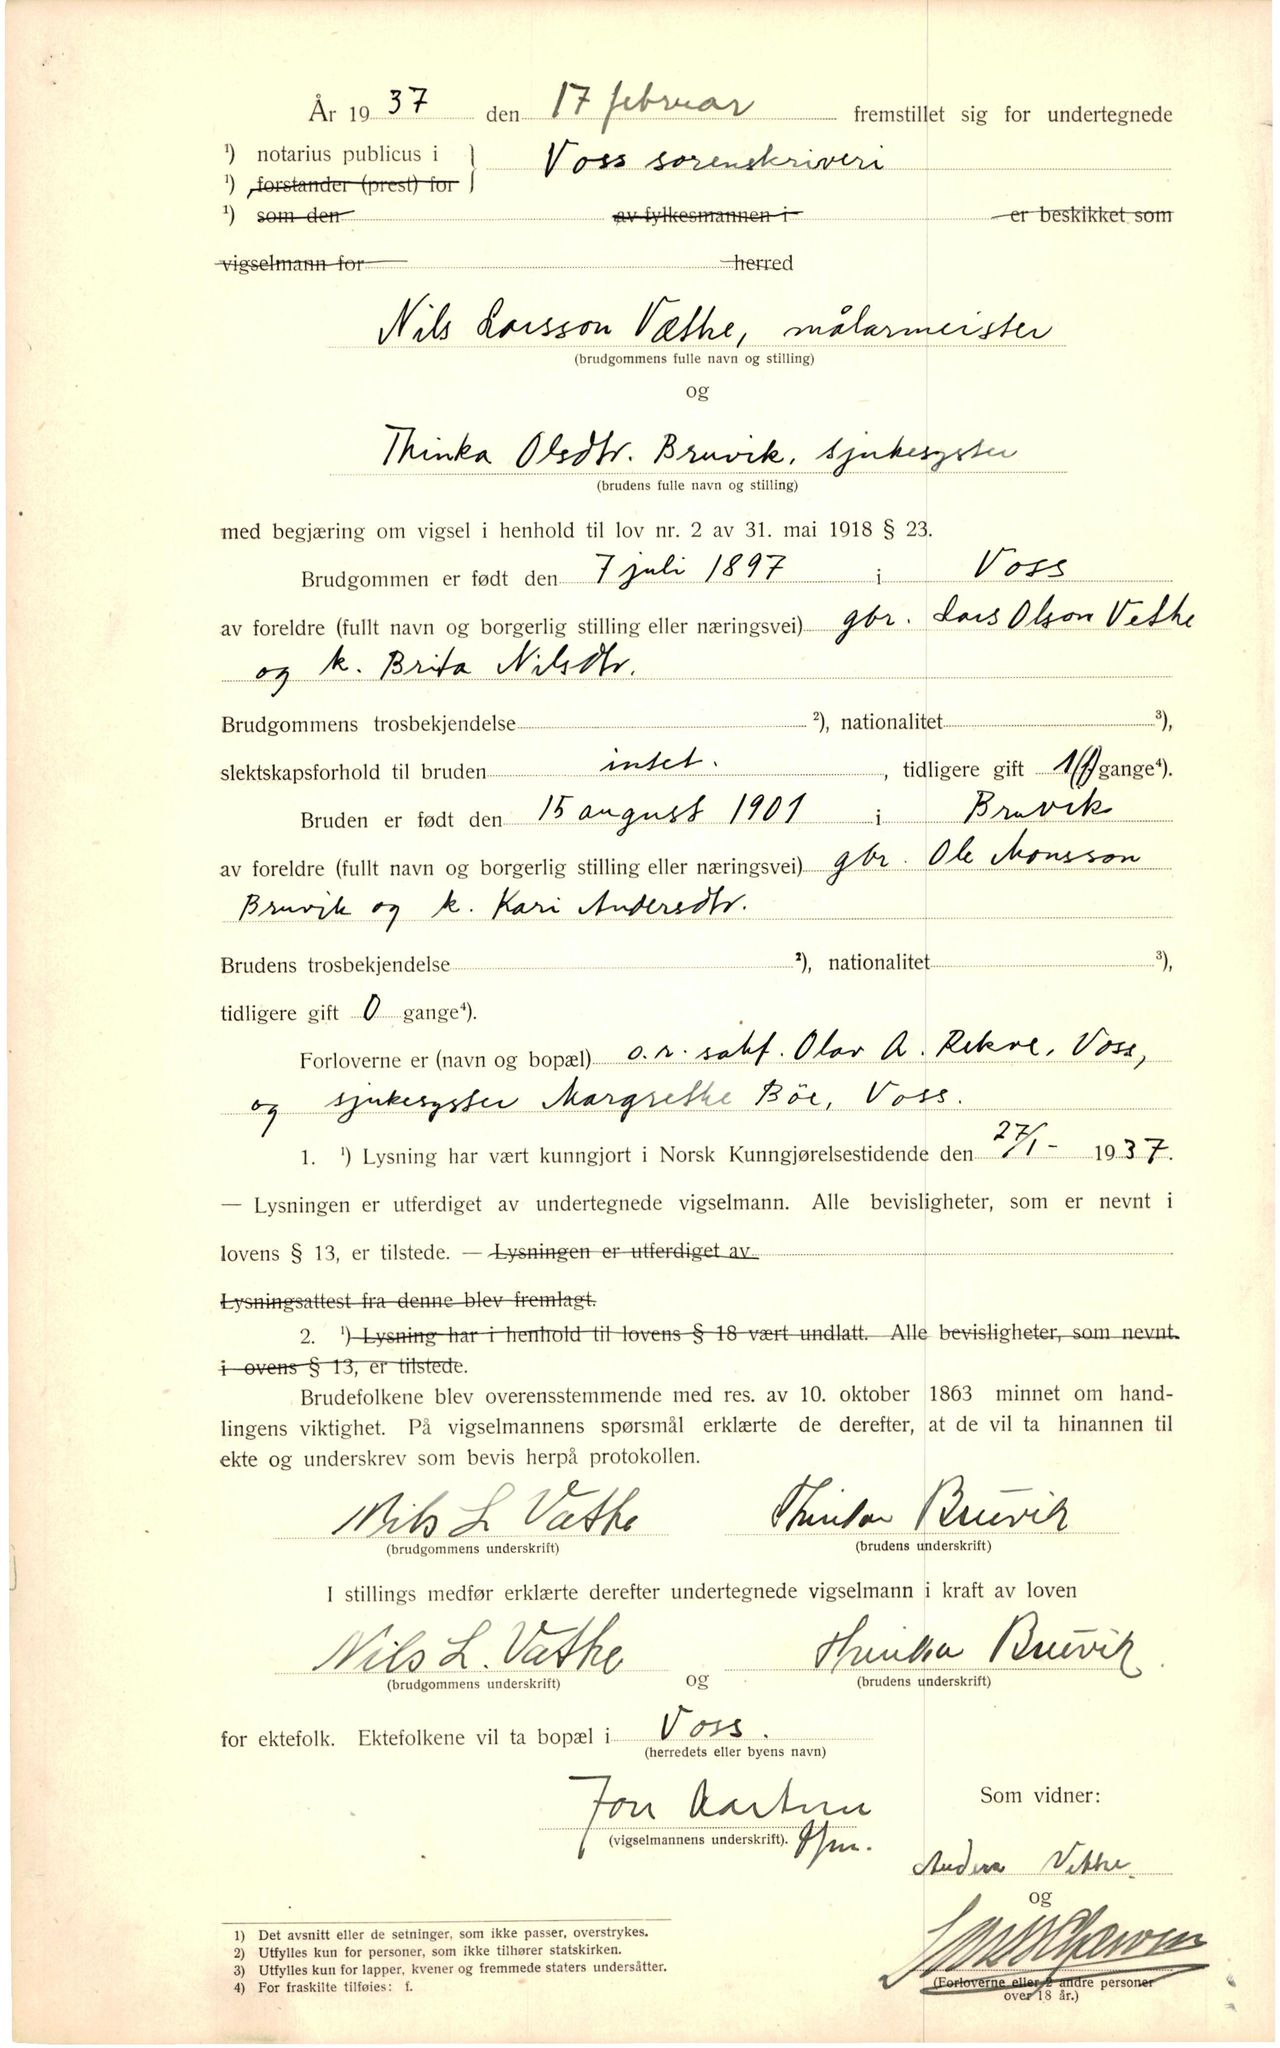 År 1937 den 17 februar fremstillet sig for undertegnede
¹) notarius publicus i } Voss sorenskriveri
¹) forstander (prest) for
¹) som den av fylkesmannen i er beskikket som
vigselmann for herred
Nils Larsson Væthe, målarmeister
(brudgommens fulle navn og stilling)
og
Thinka Olsdtr. Bruvik, sjukesyster
(brudens fulle navn og stilling)
med begjæring om vigsel i henhold til lov nr. 2 av 31. mai 1918 § 23.
Brudgommen er født den 7 juli 1897 i Voss
av foreldre (fullt navn og borgerlig stilling eller næringsvei) gbr. Lars Olson Vethe
og k. Brita Nilsdtr.
Brudgommens trosbekjendelse ²), nationalitet ³),
slektskapsforhold til bruden intet. , tidligere gift 1(f) gange⁴).
Bruden er født den 15 august 1901 i Bruvik
av foreldre (fullt navn og borgerlig stilling eller næringsvei) gbr. Ole Monsson
Bruvik og k. Kari Andersdtr.
Brudens trosbekjendelse ²), nationalitet ³),
tidligere gift 0 gange⁴).
Forloverne er (navn og bopæl) o.r. sakf. Olav A. Rekve, Voss,
og sjukesyster Margrethe Böe, Voss.
1. ¹) Lysning har vært kunngjort i Norsk Kunngjørelsestidende den 27/1- 1937.
— Lysningen er utferdiget av undertegnede vigselmann. Alle bevisligheter, som er nevnt i
lovens § 13, er tilstede. — Lysningen er utferdiget av
Lysningsattest fra denne blev fremlagt.
2. ¹) Lysning har i henhold til lovens § 18 vært undlatt. Alle bevisligheter, som nevnt
i ovens § 13, er tilstede.
Brudefolkene blev overensstemmende med res. av 10. oktober 1863 minnet om hand-
lingens viktighet. På vigselmannens spørsmål erklærte de derefter, at de vil ta hinannen til
ekte og underskrev som bevis herpå protokollen.
Nils L Væthe Thinka Bruvik
(brudgommens underskrift) (brudens underskrift)
I stillings medfør erklærte derefter undertegnede vigselmann i kraft av loven
Nils L. Væthe Thinka Bruvik
(brudgommens underskrift) og (brudens underskrift)
for ektefolk. Ektefolkene vil ta bopæl i Voss.
(herredets eller byens navn)
Jon Som vidner:
(vigselmannens underskrift).
Anders Vethe
og
1) Det avsnitt eller de setninger, som ikke passer, overstrykes.
2) Utfylles kun for personer, som ikke tilhører statskirken.
3) Utfylles kun for lapper, kvener og fremmede staters undersåtter.
4) For fraskilte tilføies: f.
(Forloverne eller 2 andre personer
over 18 år.)